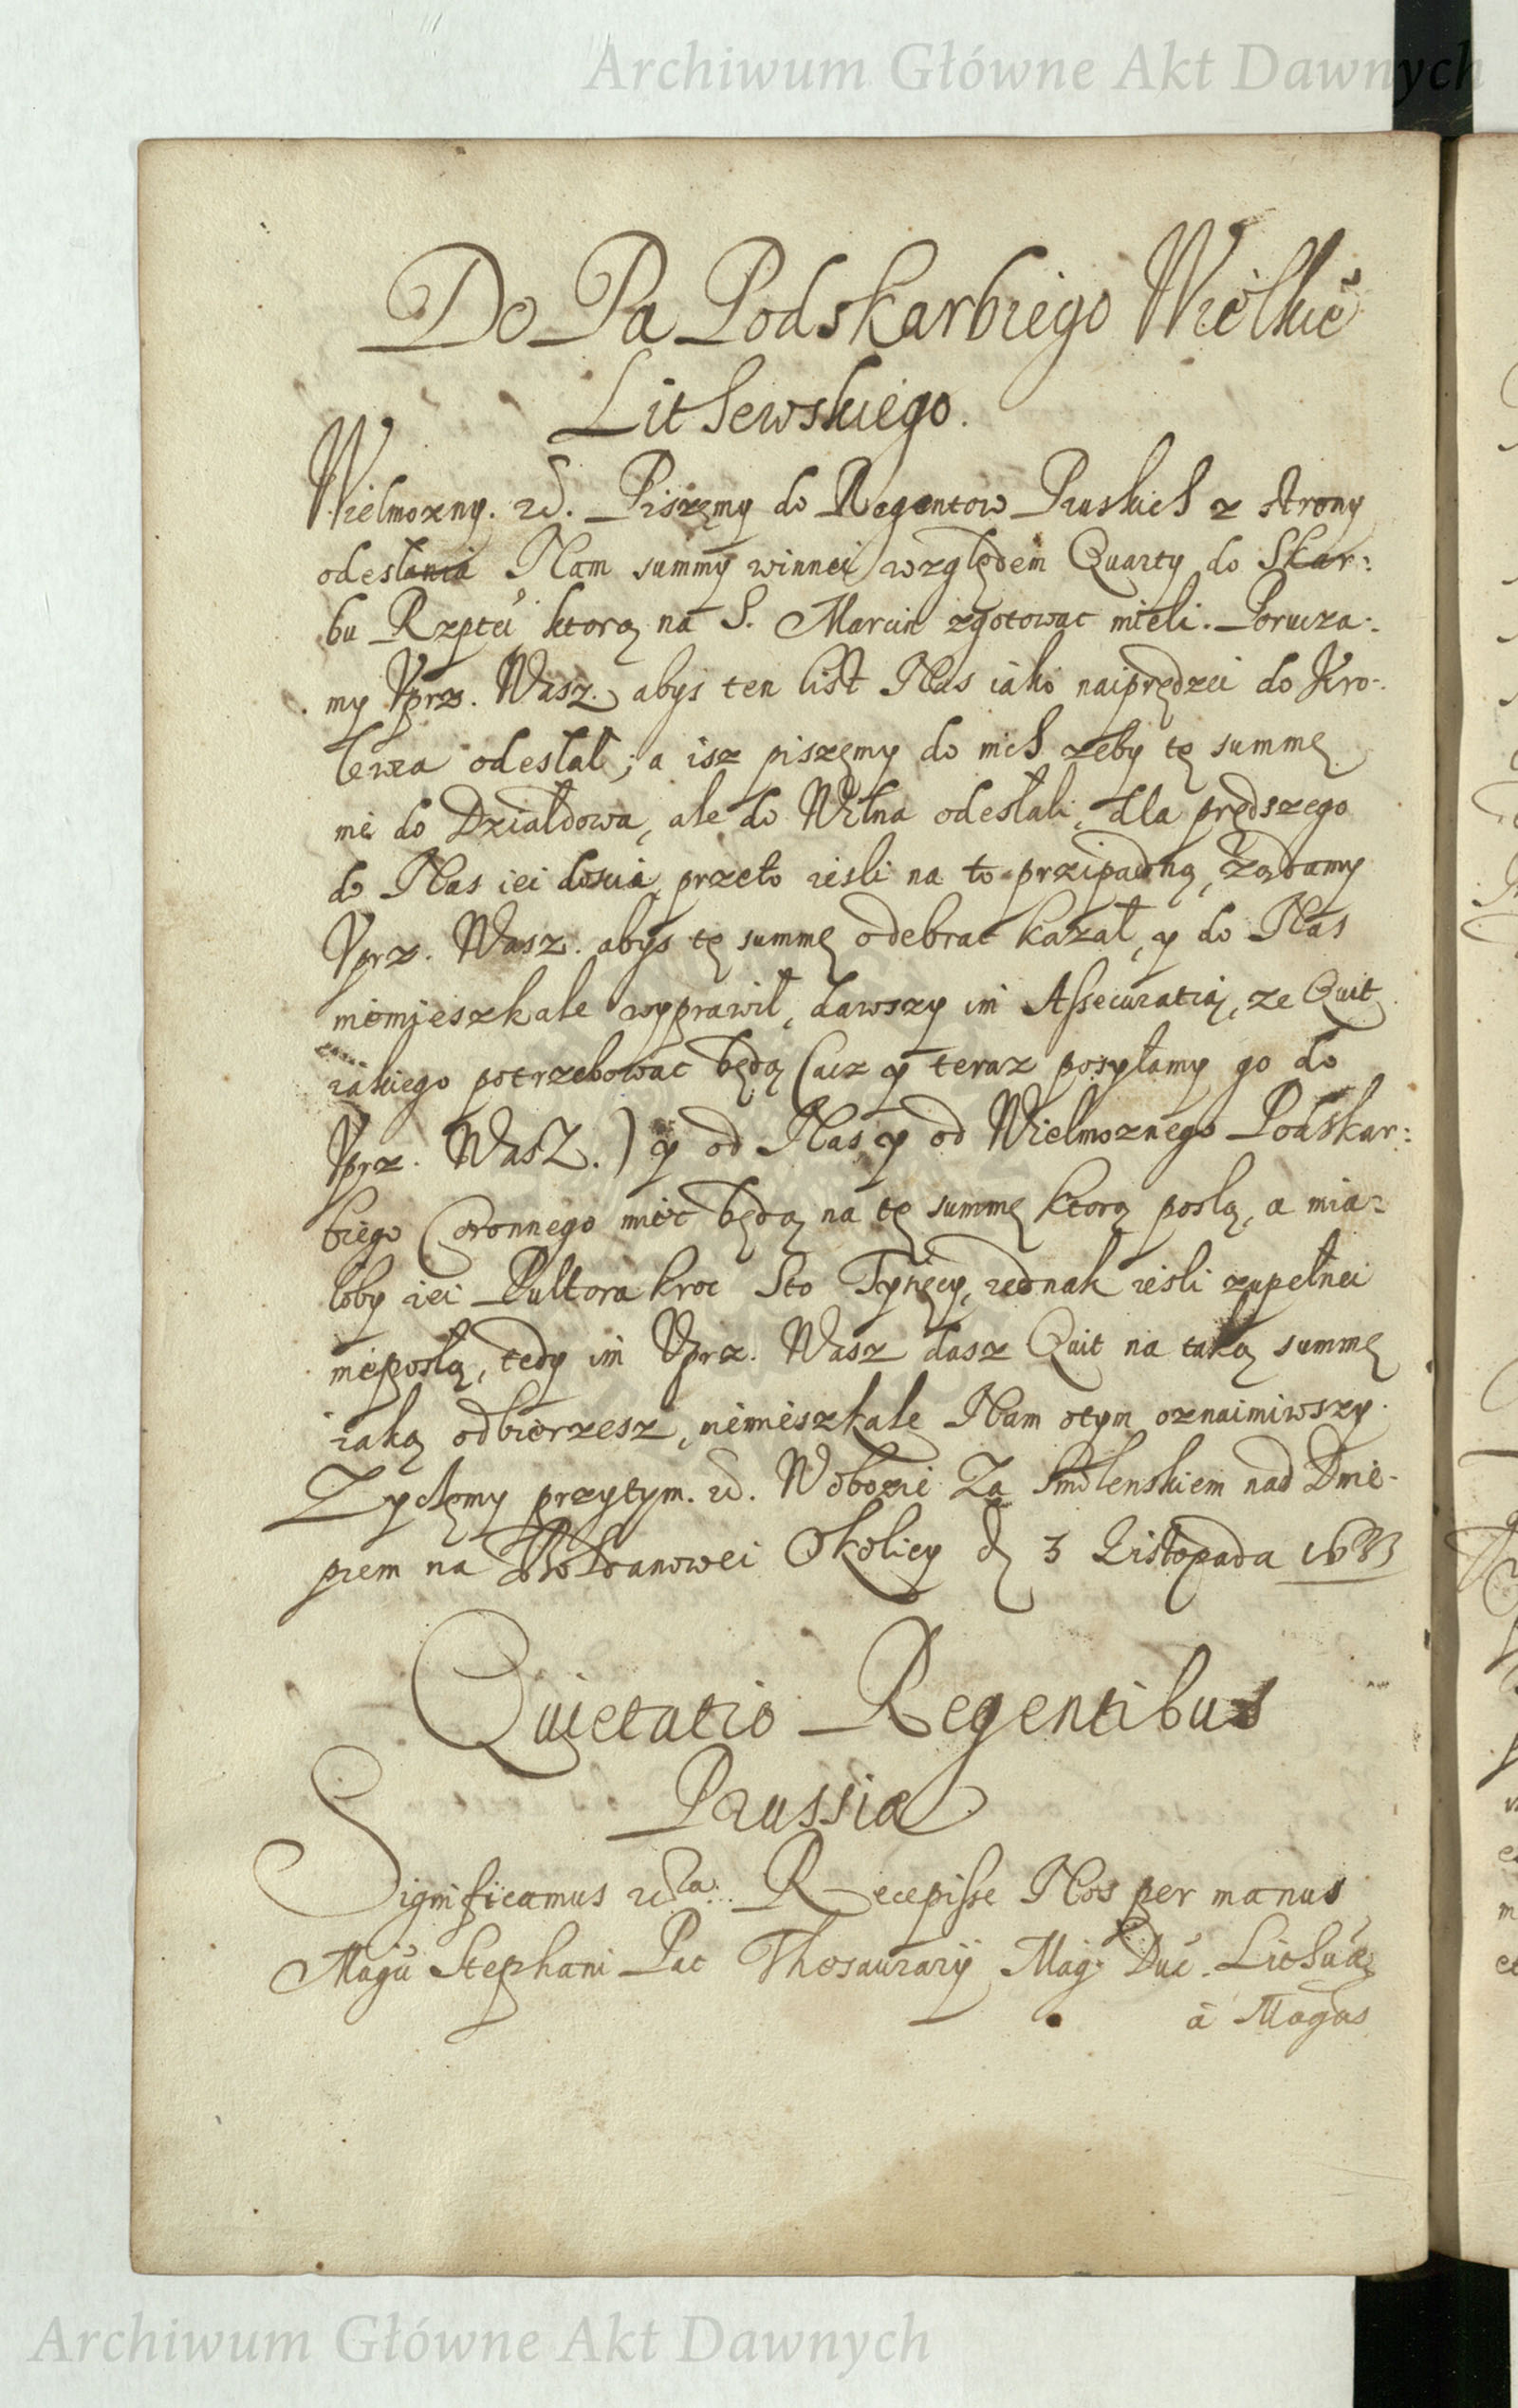 Archiwum Główne Akt Dawnych
Do Pa Podskarbiego Wielkie
Lithewskiego.
Wielmozny. etc. Piszęmy do Regentow Pruskich z strony
odesłania Nam summy winnei względem Quarty do Skar:
bu Rzptei ktorą na S. Marcin zgotowac mieli. Porucza:
my Vprz. Wasz. abys ten list Nas iako naiprędzei do Kro:
lewca odesłał; a isz piszęmy do nich zeby tę summę
nie do Działdowa, ale do Wilna odesłali, dla prędszego
do Nas iei doscia, przeto iesli na to przipadną, Ządamy
Vprz. Wasz. abys tę summę odebrac kazał, y do Nas
niemieszkale wyprawił, dawszy im Assecuratią, ze Quit
iakiego potrzebowac będą (acz y teraz posyłamy go do
Vprz. WasZ.) y od Nas y od Wielmoznego Podskar:
biego Coronnego miec będą na tę summę ktorą poslą, a mia:
łoby iei Pułtora kroc Sto Tyięcy, iednak iesli zupełnei
nieposlą, tedy im Vprz. Wasz dasz Quit na taką summę
iaką odbierzesz, niemieszkale Nam otym oznaimiwszy.
Zyczęmy przytym. etc. W obozie Za Smolenskiem nad Dnie:
prem na Bohdanowei Okolicy d 3 Listopada 1633
Quietatio Regentibus
Prussiæ
Significamus etc. Recepisse Nos per manus
Magci Stephani Pac Thesaurarij Mag. Duc. Lithuae
à Magcis
Archiwum Główne Akt Dawnych